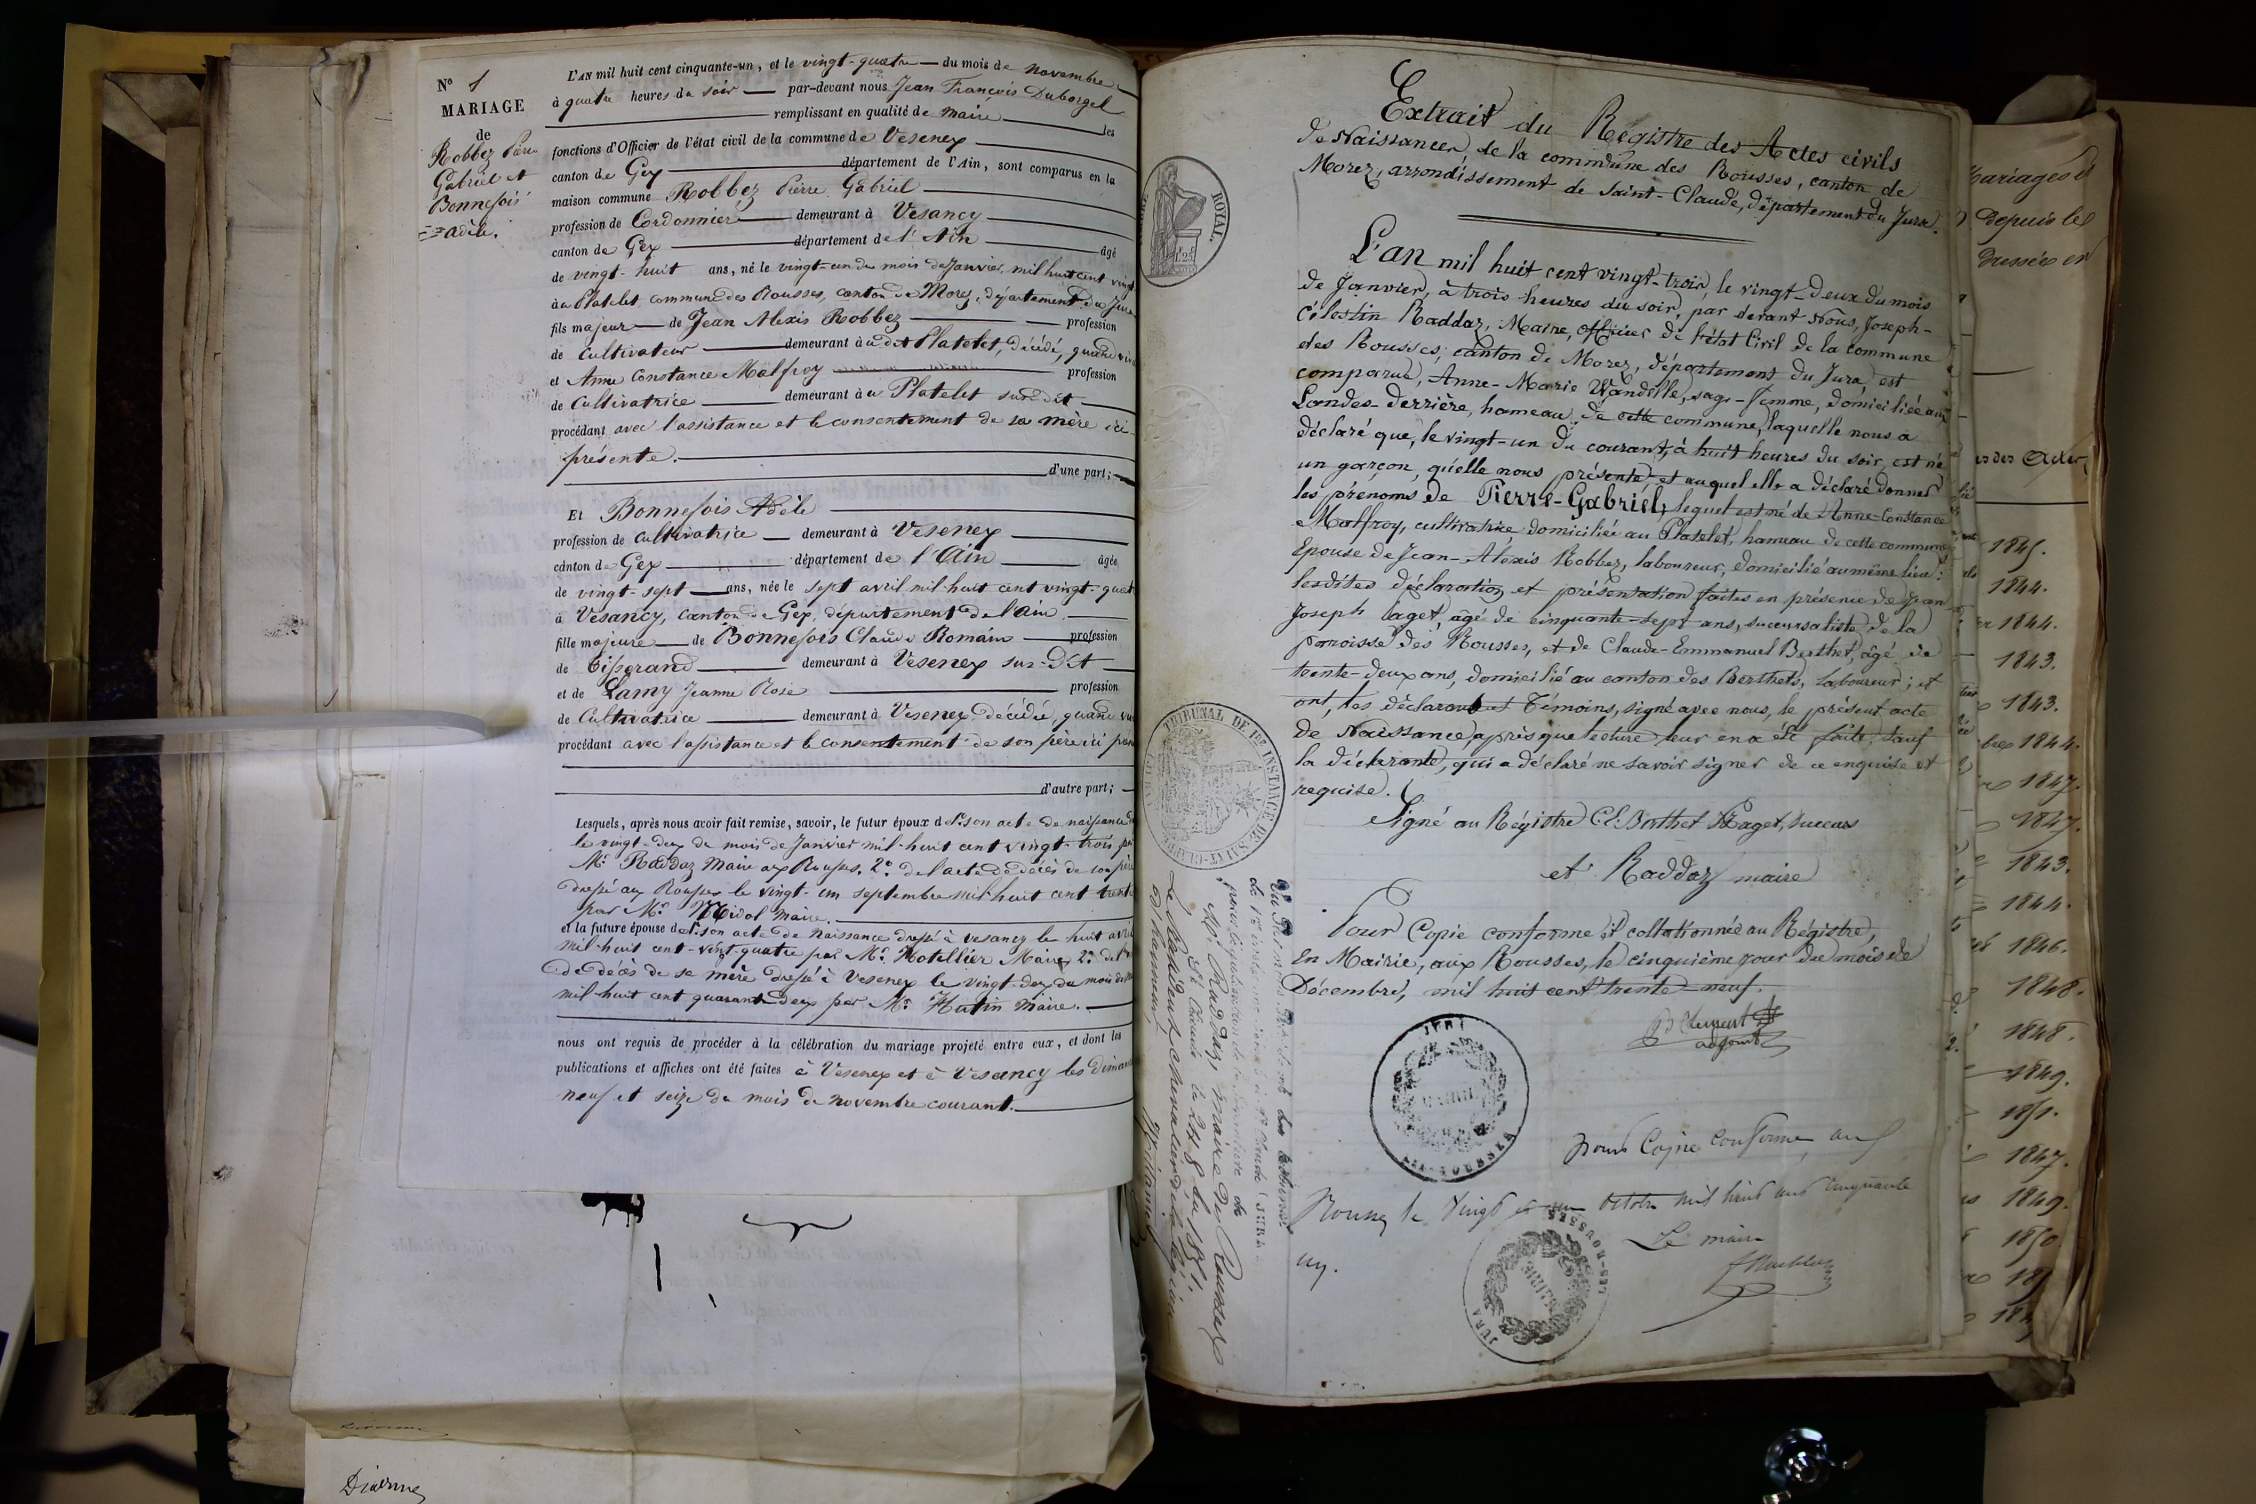 N° 1
MARIAGE
de
Robbez Pierre
Gabriel et
Bonnefois
Adèle.
L'AN mil huit cent cinquante-un, et le vingt-quatre du mois de novembre
à quatre heures du soir par-devant nous Jean François Duborgel
remplissant en qualité de maire les
fonctions d'Officier de l'état civil de la commune de Vesenex
canton de Gex département de l'Ain, sont comparus en la
maison commune Robbez Pierre Gabriel
profession de Cordonnier demeurant à Vesancy
canton de Gex département de l'Ain âgé
de vingt-huit ans, né le vingt-un du mois de Janvier, mil huit cent vingt
à au Platelet commune des Rousses, canton de Morez, département du Jura
fils majeur de Jean Alexis Robbez profession
de cultivateur demeurant à u dit Platelet, décédé, quand viv
et Anne Constance Malfroy profession
de Cultivatrice demeurant à u Platelet sus-dit
procédant avec l'assistance et le consentement de sa mère ici
présente. d'une part;
Et Bonnefois Adèle
profession de cultivatrice demeurant à Vesenex
canton de Gex département de l'Ain âgée
de vingt-sept ans, née le sept avril mil huit cent vingt-quatr
à Vesancy, canton de Gex, département de l'Ain
fille majeure de Bonnefois Claude Romain profession
de Tisserand demeurant à Vesenex sus-dit
et de Lamy Jeanne Rose profession
de Cultivatrice demeurant à Vesenex décédée, quand viv
procédant avec l'assistance et le consentement de son père ici prés
d'autre part;
Lesquels, après nous avoir fait remise, savoir, le futur époux d 1° son acte de naissance
le vingt-deux du mois de Janvier mil-huit cent vingt-trois par
Mr. Raddaz maire aux Rousses. 2° de l'acte de décès de son père
dressé aux Rousses le vingt-un septembre mil huit cent trente
par Mr. Midol maire.
et la future épouse d 1° son acte de naissance dressé à Vesancy le huit avril
mil-huit cent-vingt-quatre par Mr. Hotellier Maire, 2° de l'
de décès de sa mère dressé à Vesenex le vingt-deux du mois de
mil-huit cent quarante-deux par Mr. Hutin Maire.
nous ont requis de procéder à la célébration du mariage projeté entre eux, et dont les
publications et affiches ont été faites à Vesenex et à Vesancy les diman
neuf et seize du mois de novembre courant.
Extrait du Régistre des Actes civils
de Naissances de la commune des Rousses, canton de
Morez, arrondissement de Saint-Claude, département du Jura.
L'an mil huit cent vingt-trois, le vingt-deux du mois
de Janvier, à trois heures du soir, par devant Nous, Joseph-
célestin Raddaz, Maire, officier de l'état Civil de la commune
des Rousses, canton de Morez, département du Jura, est
comparue, Anne-Marie Vandelle, sage-femme, domiciliée aux
Landes-derrière, hameau de cette commune, laquelle nous a
déclaré que, le vingt-un du courant, à huit heures du soir, est né
un garçon, qu'elle nous présente et auquel elle a déclaré donner
les prénoms de Pierre-Gabriel, lequel est né de Anne-Constance
Malfroy, cultivatrice, domiciliée au Platelet, hameau de cette commune,
Epouse de Jean-Alexis Robbez, laboureur, domicilié au même lieu:
lesdites déclaration et présentation faites en présence de Jean
Joseph Paget, âgé de cinquante-sept ans, succursaliste de la
paroisse des Rousses, et de Claude-Emmanuel Berthet, âgé de
trente-deux ans, domicilié au canton des Berthets, laboureur; et
ont, les déclarant et Témoins, signé avec nous, le présent acte
de Naissance, après que lecture leur en a été faite, sauf
la déclarante, qui a déclaré ne savoir signer de ce enquise et
requise.
Signé au Régistre C. E. Berthet Paget, succurs
et Raddaz maire
Pour Copie conforme et collationnée au Régistre,
En Mairie, aux Rousses, le cinquième jour du mois de
Décembre, mil huit cent trente-neuf.
adjoint
pour Copie conforme aux
Rousses le vingt et un octobre mil huit cent cinquante
un.
Le maire
ROYAL.
1f.25
TRIBUNAL DE 1re INSTANCE DE SAINT-CLAUDE
JURA
MAIRIE
LES-ROUSSES
LES-ROUSSES
MAIRIE
JURA
Mr. Raddaz, maire des Rousses
St Claude le 1851.
Mariages
depuis les
dressées
des Actes
1845.
1844.
1844.
1843.
1843.
1844.
1847.
1847.
1843.
1844.
1846.
1848.
1848.
1849.
1851.
1847.
1849.
1850